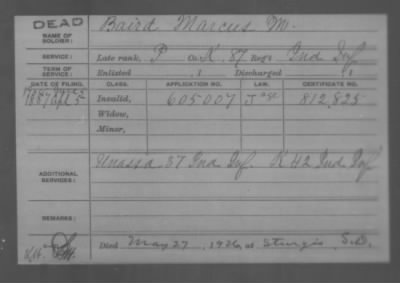 DEAD
NAME OF SOLDIER: Baird Marcus M.
SERVICE: Late rank, P Co. K, 87 Reg't Ind Inf
TERM OF SERVICE: Enlisted , 1 Discharged , 1
DATE OF FILING. CLASS. APPLICATION NO. LAW. CERTIFICATE NO.
1887 Apl 5 Invalid, 605007 J 812,825
Widow,
Minor,
ADDITIONAL SERVICES: Unassd 37 Ind Inf. K 42 Ind Inf
REMARKS:
Died May 27, 1926, at Sturgis, S.D.